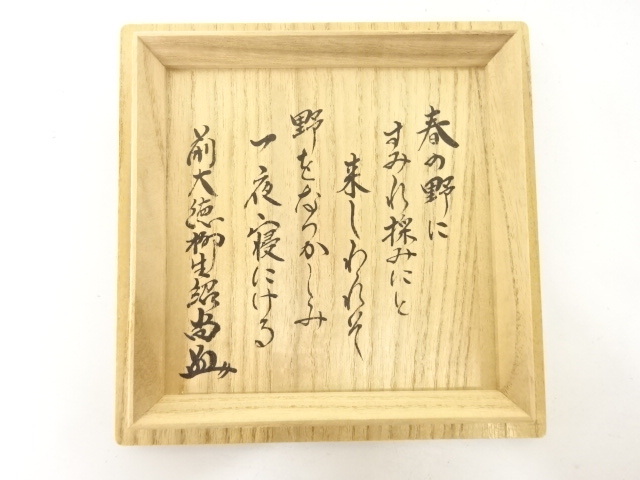 春の野に
すみれ採みにと
来しわれそ
野をなつかしみ
一夜寝にける
前大徳柳生紹尚